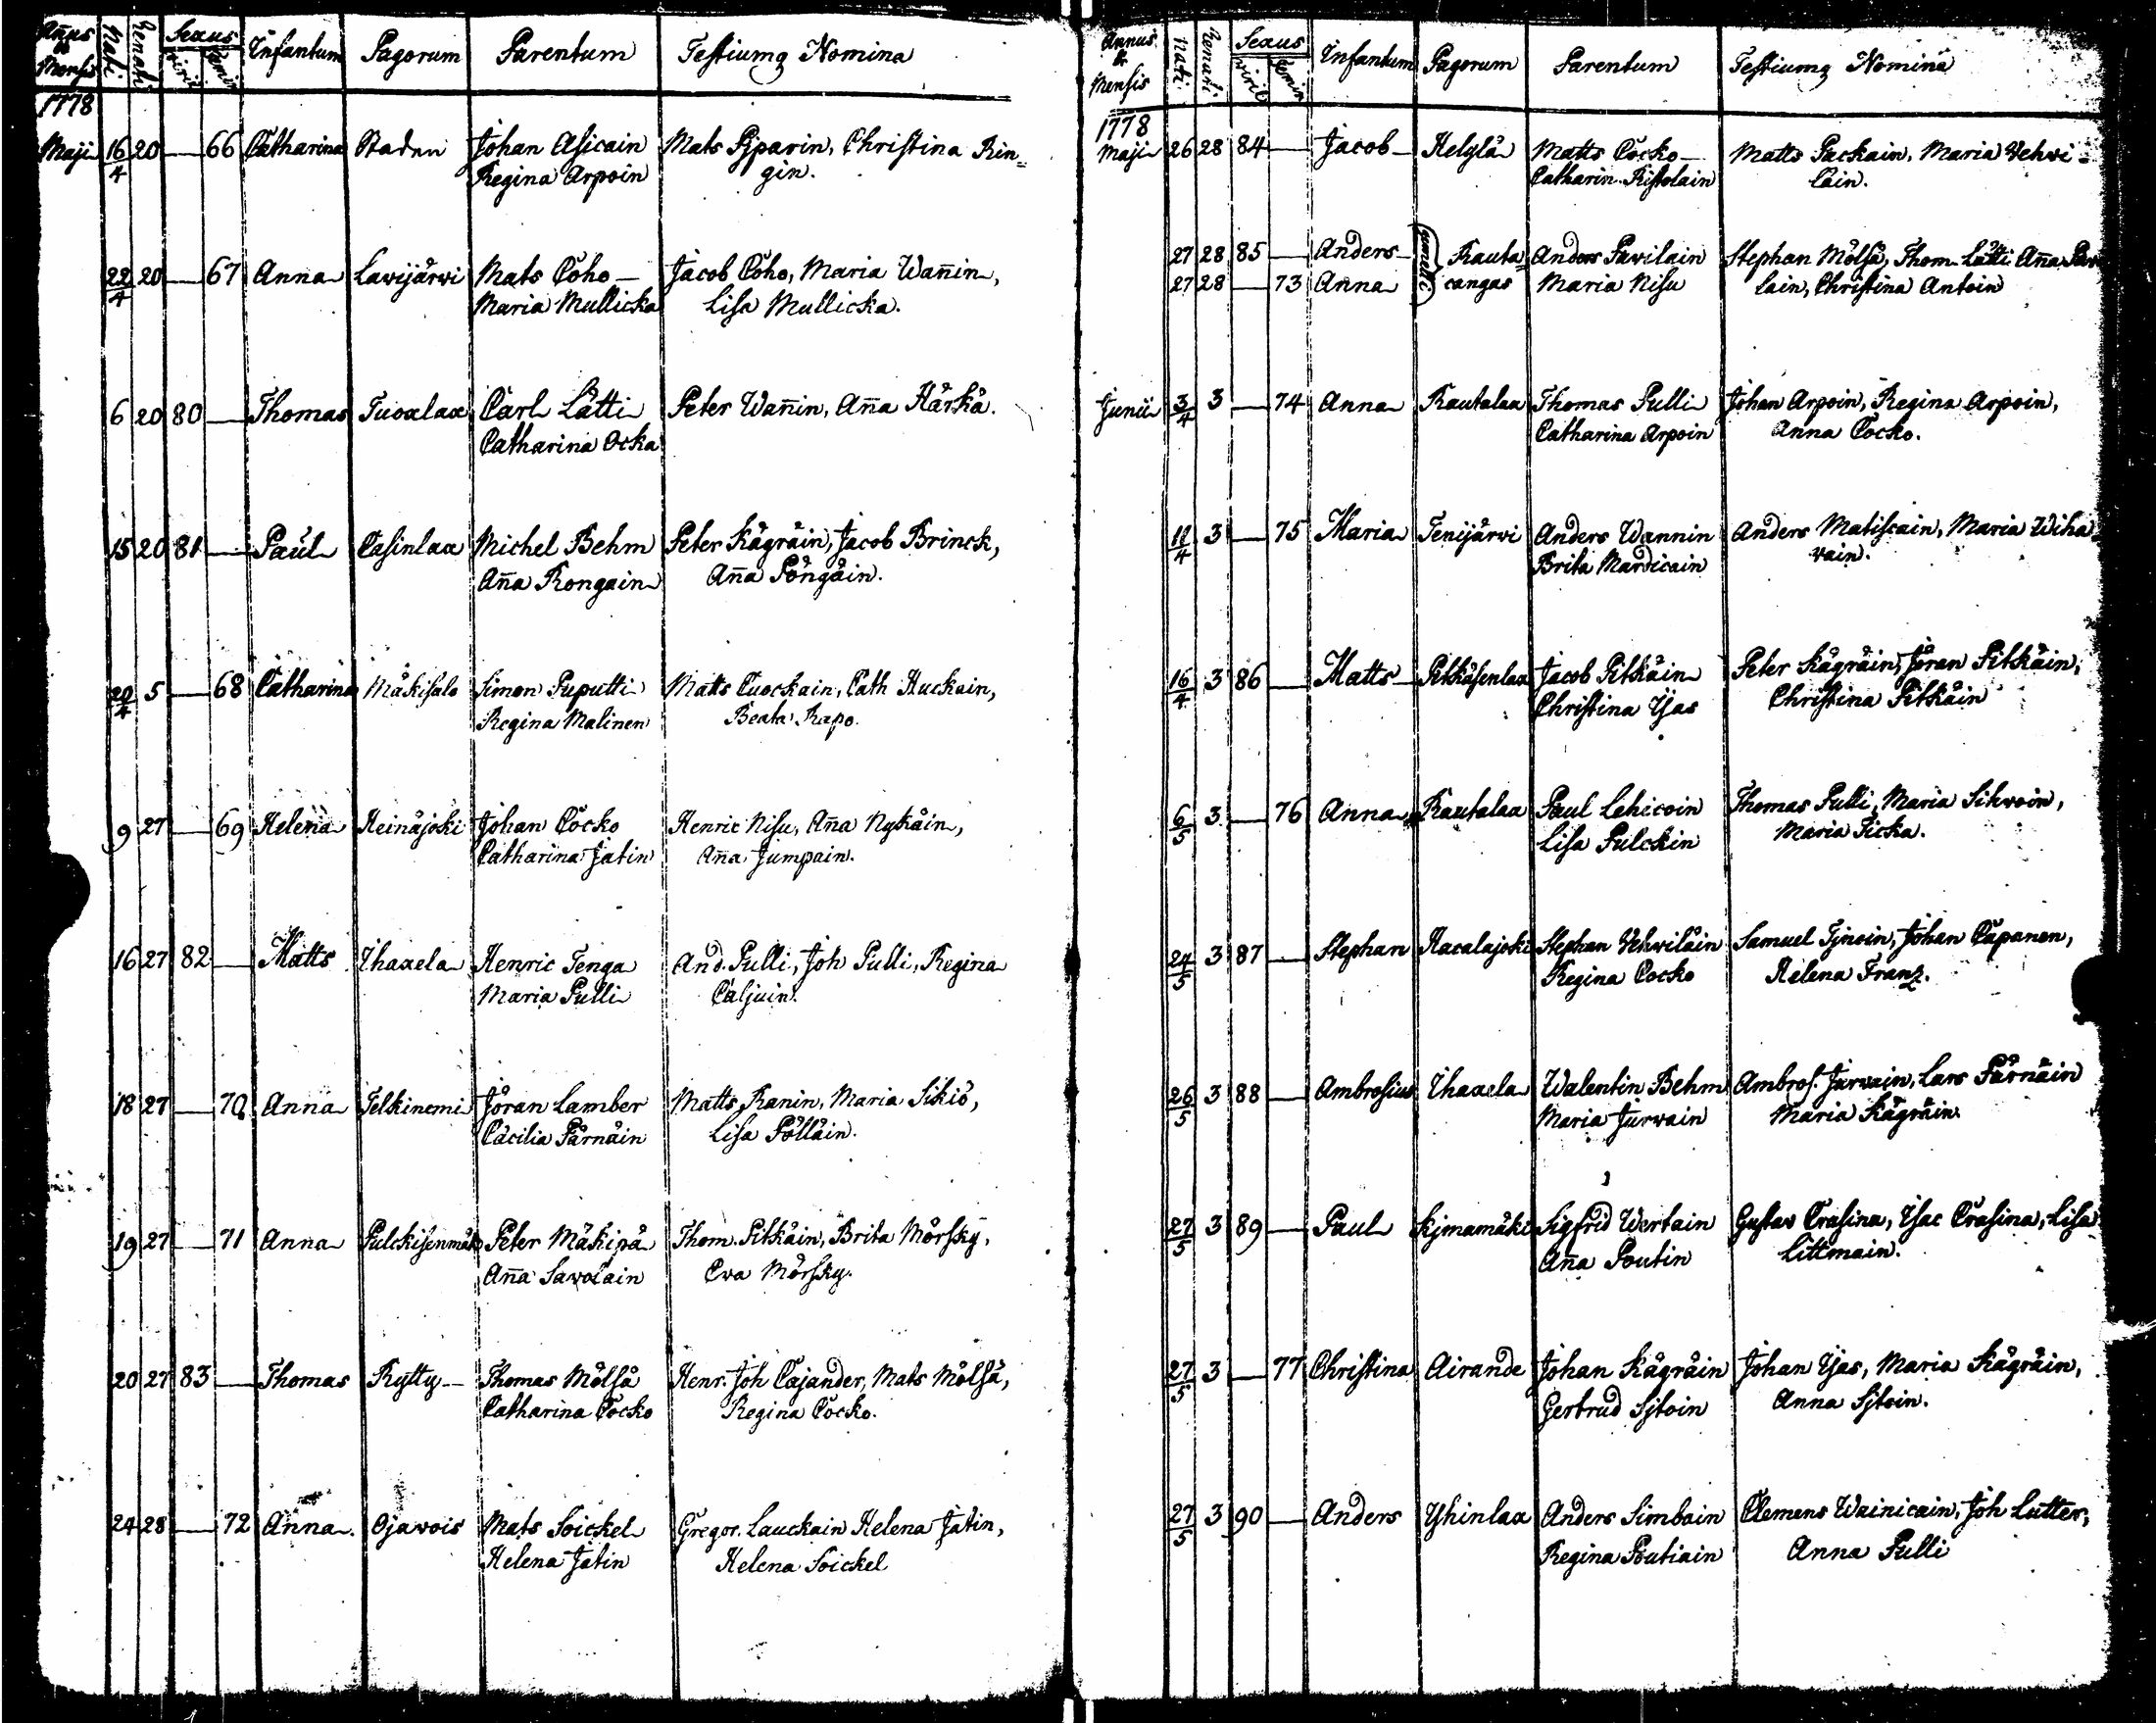 Añus & Mensis Nati Renati Sexus viril. femin. Infantum Pagorum Parentum Testiumq Nomina
1778
Maji 16/4 20 — 66 Catharina Staden Johan Asicain Mats Pyparin, Christina Rin=
Regina Arpoin gin.
22/4 20 — 67 Anna Lavijärvi Mats Coho Jacob Coho, Maria Wañin,
Maria Mullicka Lisa Mullicka.
6 20 80 — Thomas Tuoxlax Carl Lätti Peter Wañin, Aña Härkä.
Catharina Ocka
15 20 81 — Paul Casinlax Michel Behm Peter Kägräin, Jacob Brinck,
Aña Rongain Aña Pöngäin.
20/4 5 — 68 Catharina Mäkisalo Simon Puputti Matts Cuockain, Cath Huckain,
Regina Malinen Beata Rapo.
9 27 — 69 Helena Heinäjoki Johan Cocko Henric Nisu, Aña Nykäin,
Catharina Jatin Aña Jumpain.
16 27 82 — Matts Ihaxela Henric Tenga And. Pulli, Joh Pulli, Regina
Maria Pulli Caljuin.
18 27 — 70 Anna Telkinemi Jöran Lamber Matts Ranin, Maria Sikiö,
Cäcilia Pärnäin Lisa Pölläin.
19 27 — 71 Anna Pulckisenmäki Peter Mäkipä Thom. Pitkäin, Brita Mörsky,
Aña Savolain Eva Mörsky.
20 27 83 — Thomas Kytty Thomas Mölsä Henr. Joh Cajander, Mats Mölsä,
Catharina Cocko Regina Cocko.
24 28 — 72 Anna Ojavois Mats Soickel Gregor. Lauckain Helena Jatin,
Helena Jatin Helena Soickel
Annus & Mensis Nati Renati Sexus viril femin Infantum Pagorum Parentum Testiumq Nomina
1778
Maji 26 28 84 — Jacob Helylä Matts Cocko Matts Packain, Maria Vehvi=
Catharin. Ristolain lain.
27 28 85 — Anders gemelli Rauta= Anders Pavilain Stephan Mölsä, Thom. Lätti Aña Pavi
27 28 — 73 Anna cangas Maria Nisu lain, Christina Antoin
Junii 3/4 3 — 74 Anna Rautalax Thomas Pulli Johan Arpoin, Regina Arpoin,
Catharina Arpoin Anna Cocko.
11/4 3 — 75 Maria Tenijärvi Anders Wannin Anders Matiscain, Maria Wiha
Brita Mardicain vain.
16/4 3 86 — Matts Pitkäsenlax Jacob Pitkäin Peter Kägräin, Jöran Pitkäin,
Christina Yjas Christina Pitkäin
6/5 3 — 76 Anna Rautalax Paul Lehicoin Thomas Pulli, Maria Sihvoin,
Lisa Pulckin Maria Ticka.
24/5 3 87 — Stephan Kacalajoki Stephan Vehviläin Samuel Tynoin, Johan Capanen,
Regina Cocko Helena Franz.
26/5 3 88 — Ambrosius Ihaxela Walentin Behm Ambros. Jurvain, Lars Pärnäin
Maria Jurvain Maria Kägräin.
27/5 3 89 — Paul Kijmamäki Sigfrid Wertain Gustav Crasina, Isac Crasina, Lisa
Aña Poutin Littmain.
27/5 3 — 77 Christina Airande Johan Kägräin Johan Yjas, Maria Kägräin,
Gertrud Sijtoin Anna Sijtoin.
27/5 3 90 — Anders Yhinlax Anders Simbain Clemens Wainicain, Joh Lutter,
Regina Poutiain Anna Pulli